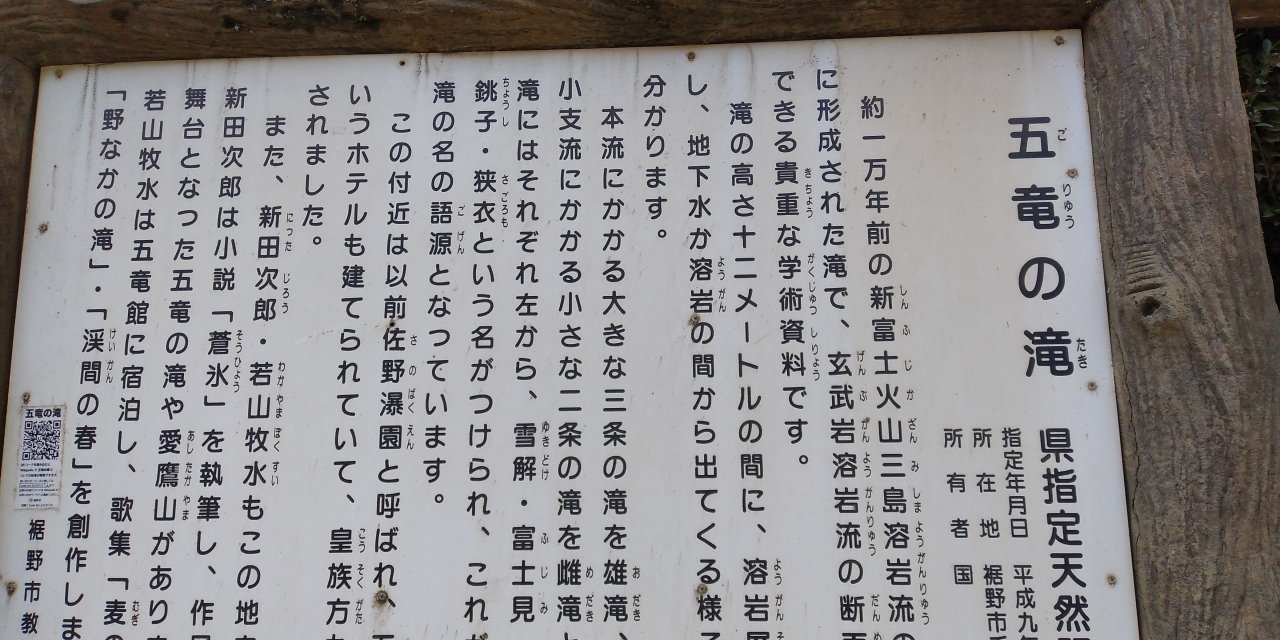 五竜の滝
ごりゅう たき
県指定天然
指定年月日 平成九年
所在地 裾野市
所有者 国
約一万年前の新富士火山三島溶岩流の
に形成された滝で、玄武岩溶岩流の断面
できる貴重な学術資料です。
滝の高さ十二メートルの間に、溶岩層
し、地下水が溶岩の間から出てくる様子
分かります。
本流にかかる大きな三条の滝を雄滝、
小支流にかかる小さな二条の滝を雌滝と
滝にはそれぞれ左から、雪解・富士見
銚子・狭衣という名がつけられ、これが
滝の名の語源となっています。
この付近は以前佐野瀑園と呼ばれ、五
いうホテルも建てられていて、皇族方
されました。
また、新田次郎・若山牧水もこの地を
新田次郎は小説「蒼氷」を執筆し、作品
舞台となった五竜の滝や愛鷹山があり
若山牧水は五竜館に宿泊し、歌集「麦の
「野なかの滝」・「渓間の春」を創作しま
裾野市教
五竜の滝